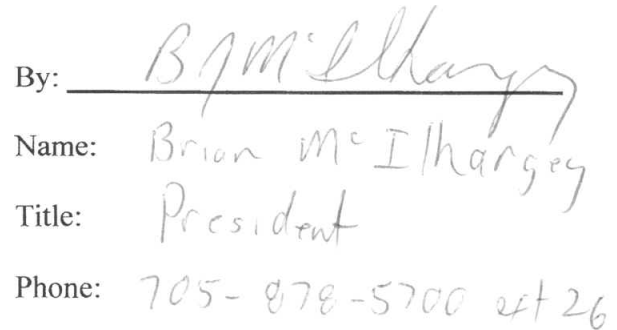 By: BJMcIlhargey
Name: Brian McIlhargey
Title: President
Phone: 705-878-5700 ext 26